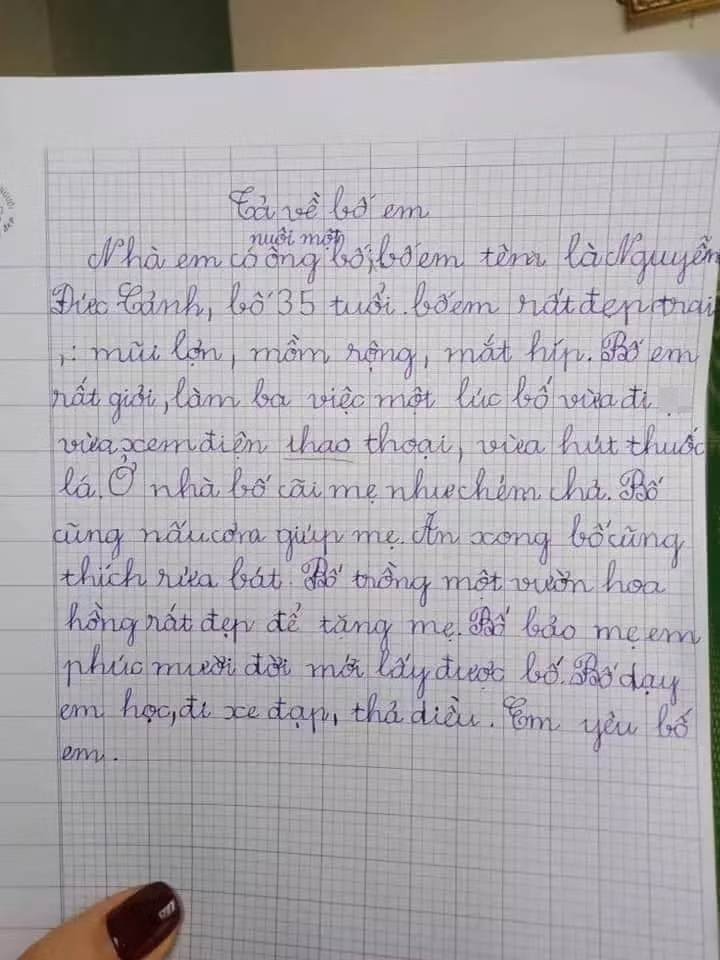 Tả về bố em
nuôi một
Nhà em có ông bố, bố em tên là Nguyễn
Đức Cảnh, bố 35 tuổi. bố em rất đẹp trai
,: mũi lợn, mồm rộng, mắt híp. Bố em
rất giỏi, làm ba việc một lúc bố vừa đi
vừa xem điện thao thoại, vừa hút thuốc
lá. Ở nhà bố cãi mẹ như chém chả. Bố
cũng nấu cơm giúp mẹ. Ăn xong bố cũng
thích rửa bát. Bố trồng một vườn hoa
hồng rất đẹp để tặng mẹ. Bố bảo mẹ em
phúc mười đời mới lấy được bố. Bố dạy
em học, đi xe đạp, thả diều. Em yêu bố
em.